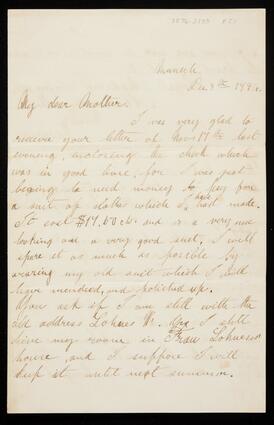 Munich
Dec 3rd 189
My dear Mother.
I was very glad to
receive your letter of Nov 17th last
evening, enclosing the check which
was in good time, for I was just
beginning to need money to pay for
a suit of clothes which I had made.
It cost $17.50 cts. and is a very nice
looking and a very good suit. I will
spare it as much as possible by
wearing my old suit which I will
have mended, and fixed up.
You ask if I am still with the
old address Lohners
I still
have my room in Frau Lohners
house, and I suppose I will
keep it until next summer.